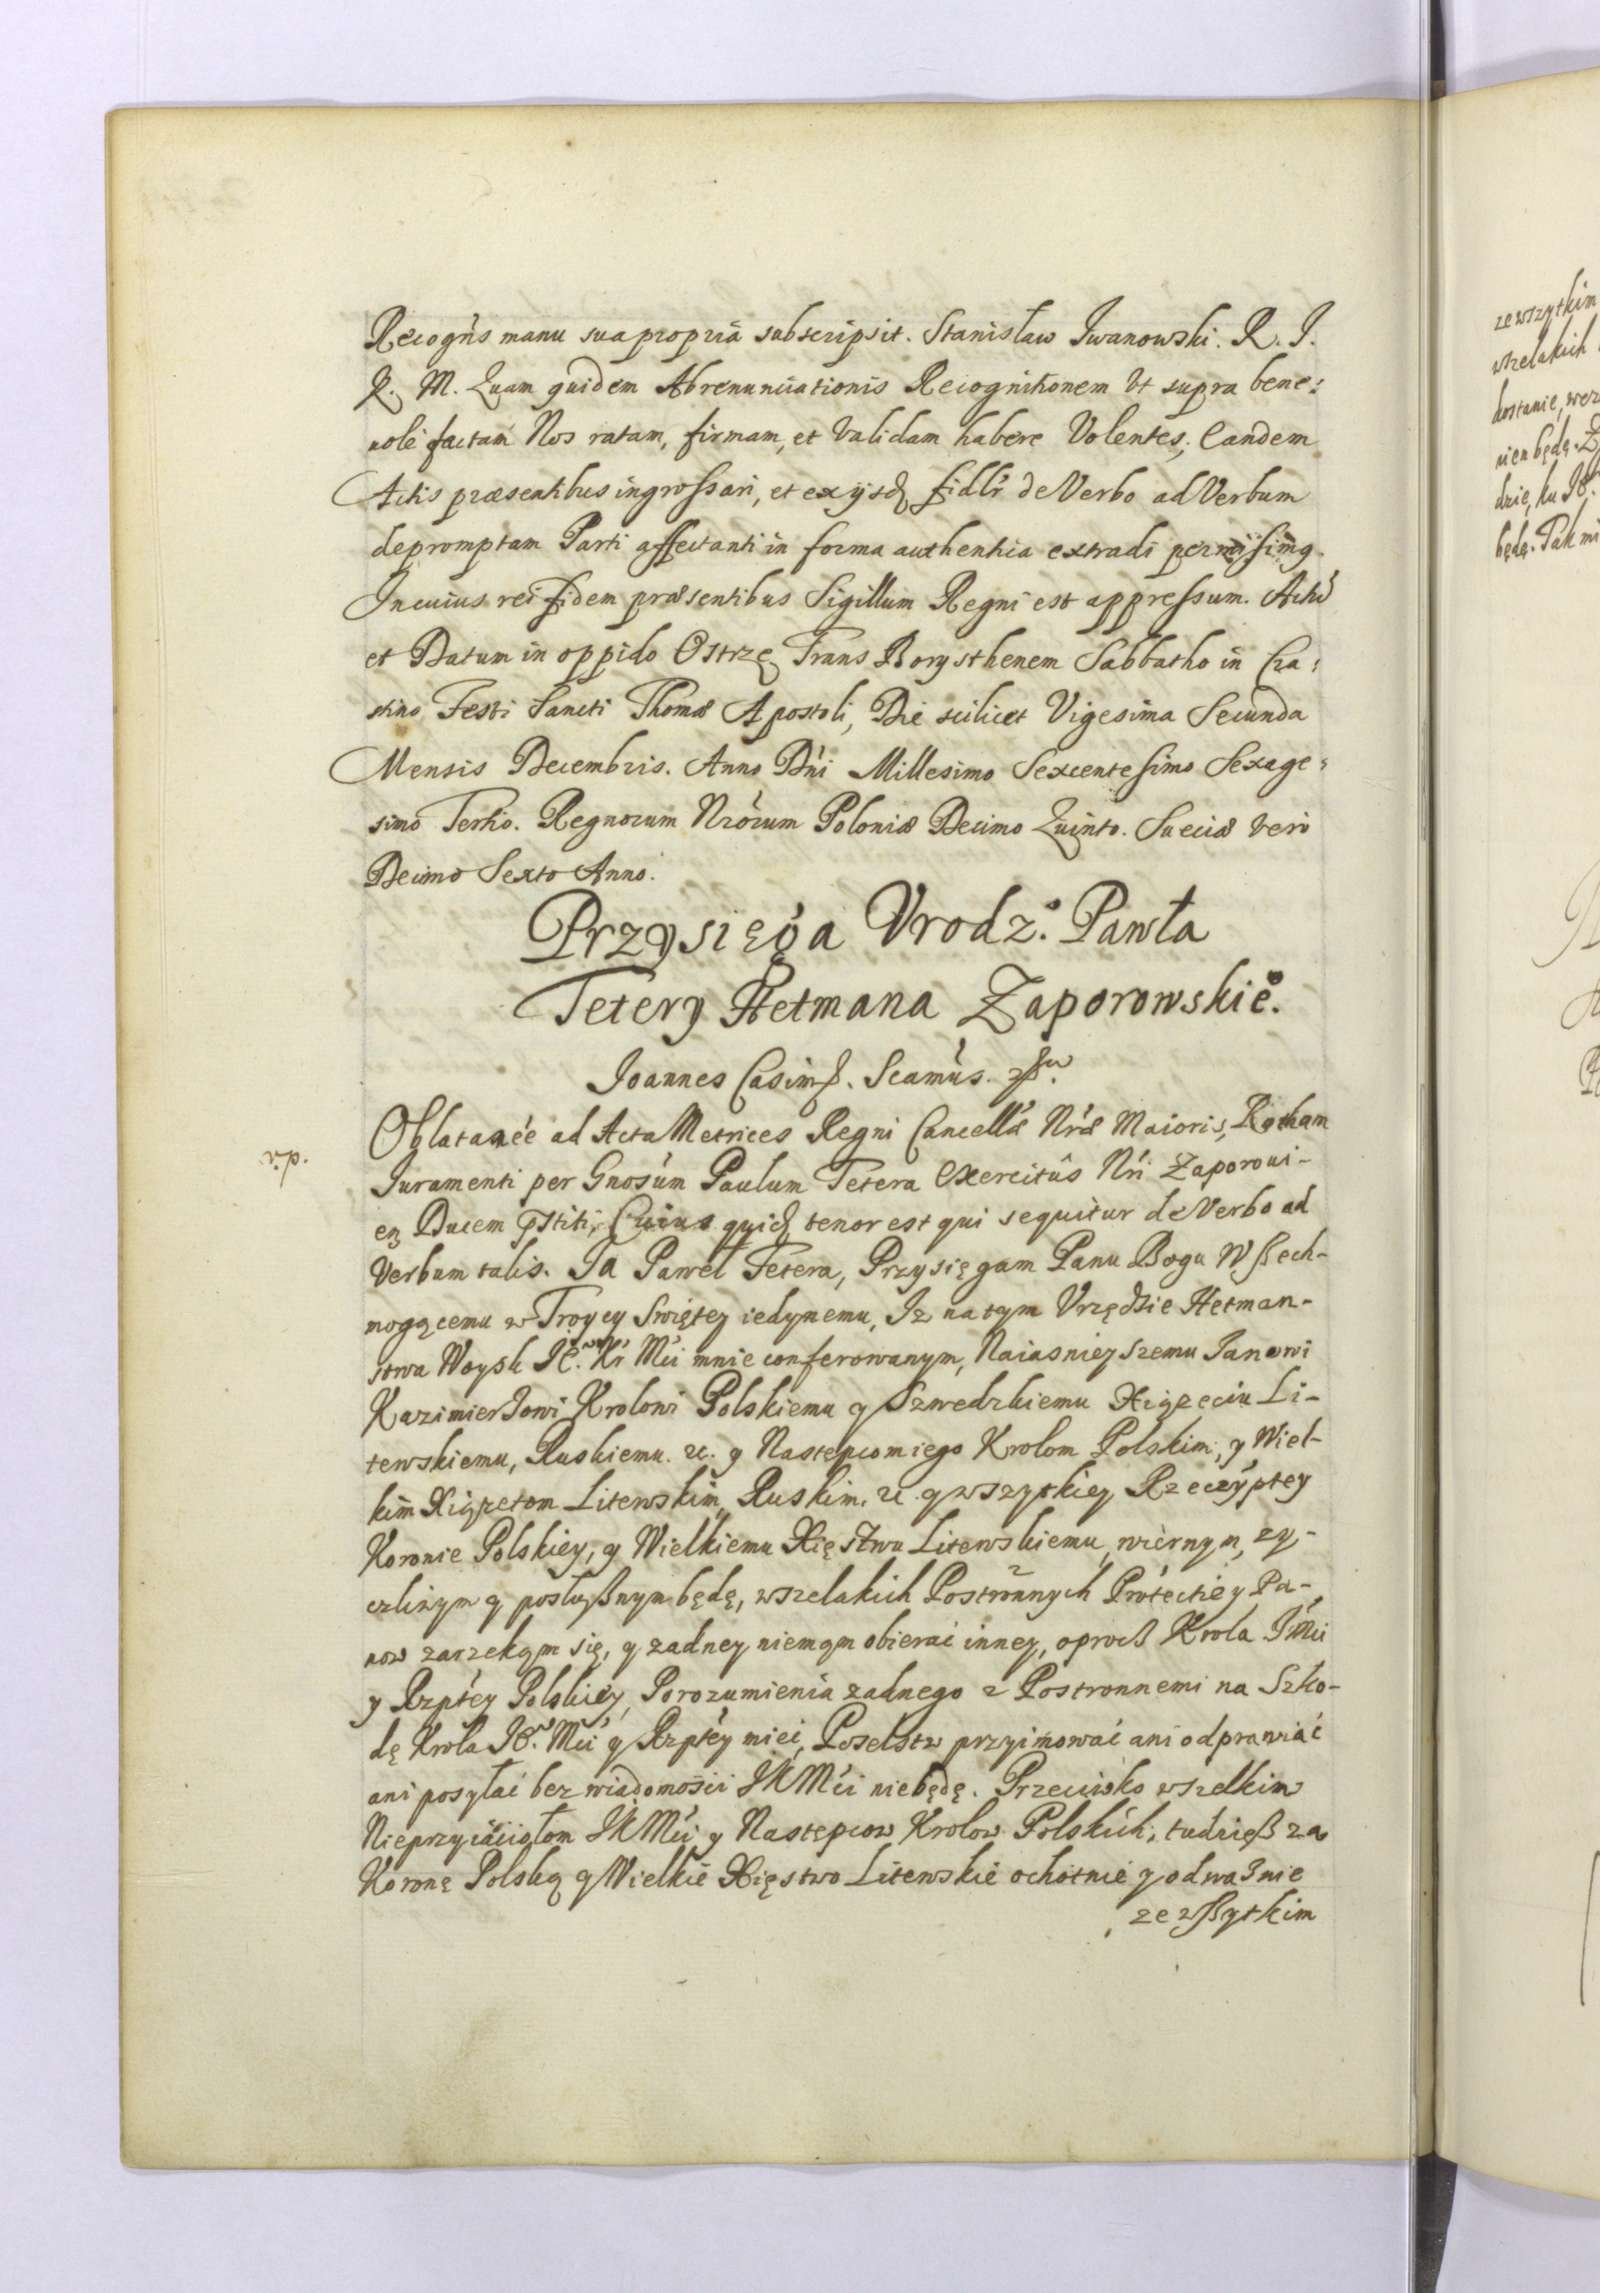 Recogńs manu sua propria subscripsit. Stanisław Jwanowski. R. J.
R. M. Quam quidem Abrenunciationis Recognitionem Vt supra bene:
uolè factam Nos ratam, firmam, et Validam habere Volentes, Eandem
Actis præsentibus ingrossari, et ex ijsd fidlr de Verbo ad Verbum
depromptam Parti affectanti in forma authentica extradi permisimg.
In cuius rei fidem præsentibus Sigillum Regni est appressum. Actũ
et Datum in oppido Ostrze Trans Borysthenem Sabbatho in Cra:
stino Festi Sancti Thomæ Apostoli, Die scilicet Vigesima Secunda
Mensis Decembris. Anno Dńi Millesimo Sexcentesimo Sexage:
simo Tertio. Regnorum Nrórum Poloniæ Decimo Quinto. Sueciæ vero
Decimo Sexto Anno.
Przysięga Vrodz.º Pawła
Tetery Hetmana Zaporowskieº.
Joannes Casim. Seamús.
Oblatam ée ad Acta Metrices Regni Cancellǽ Nrǽ Maioris, Rotham
Juramenti per Gnosúm Paulum Tetera Exercitûs Nri Zaporoui-
en Ducem pstiti, Cuius quid tenor est qui sequitur de Verbo ad
Verbum talis. Ja Paweł Tetera, Przysięgam Panu Bogu Wßech-
mogącemu w Troycy Swiętey iedynemu, Jz na tym Vrzędzie Hetman-
stwa Woysk Jº. Kr Mći mnie conferowanym, Naiasnieyszemu Janowi
Kazimierzowi Krolowi Polskiemu y Szwedzkiemu Xiązęciu Li-
tewskiemu, Ruskiemu. &c. y Nastepcom iego Krolom Polskim, y Wiel-
kim Xiązetom Litewskim, Ruskim. &c. y wszytkiey Rzeczyptey
Koronie Polskiey, y Wielkiemu Xięstwu Litewskiemu, wiernym, zy-
czliwym y posłußnym będę, wszelakich Postronnych Protectiey Pa-
now zarzekam się, y zadney niemam obierac inney, oprocß Krola JMći
y Rzptey Polskiey, Porozumienia zadnego z Postronnemi na Szko-
dę Krola Jº. Mći y Rzptey mieć, Poselstw przyimować ani odprawiać
ani posyłać bez wiadomości JKMći niebędę. Przeciwko wszelkim
Nieprzyiaciołom JKMći y Nastepcow Krolow Polskich, tudzieß za
Koronę Polską y Wielkie Xięstwo Litewskie ochotnie y odwaznie
ze wßytkim
zewszytkim
wszelakich
dostanie, wez
nien będę. Z
dzie, ku Jº.
będę. Tak mi